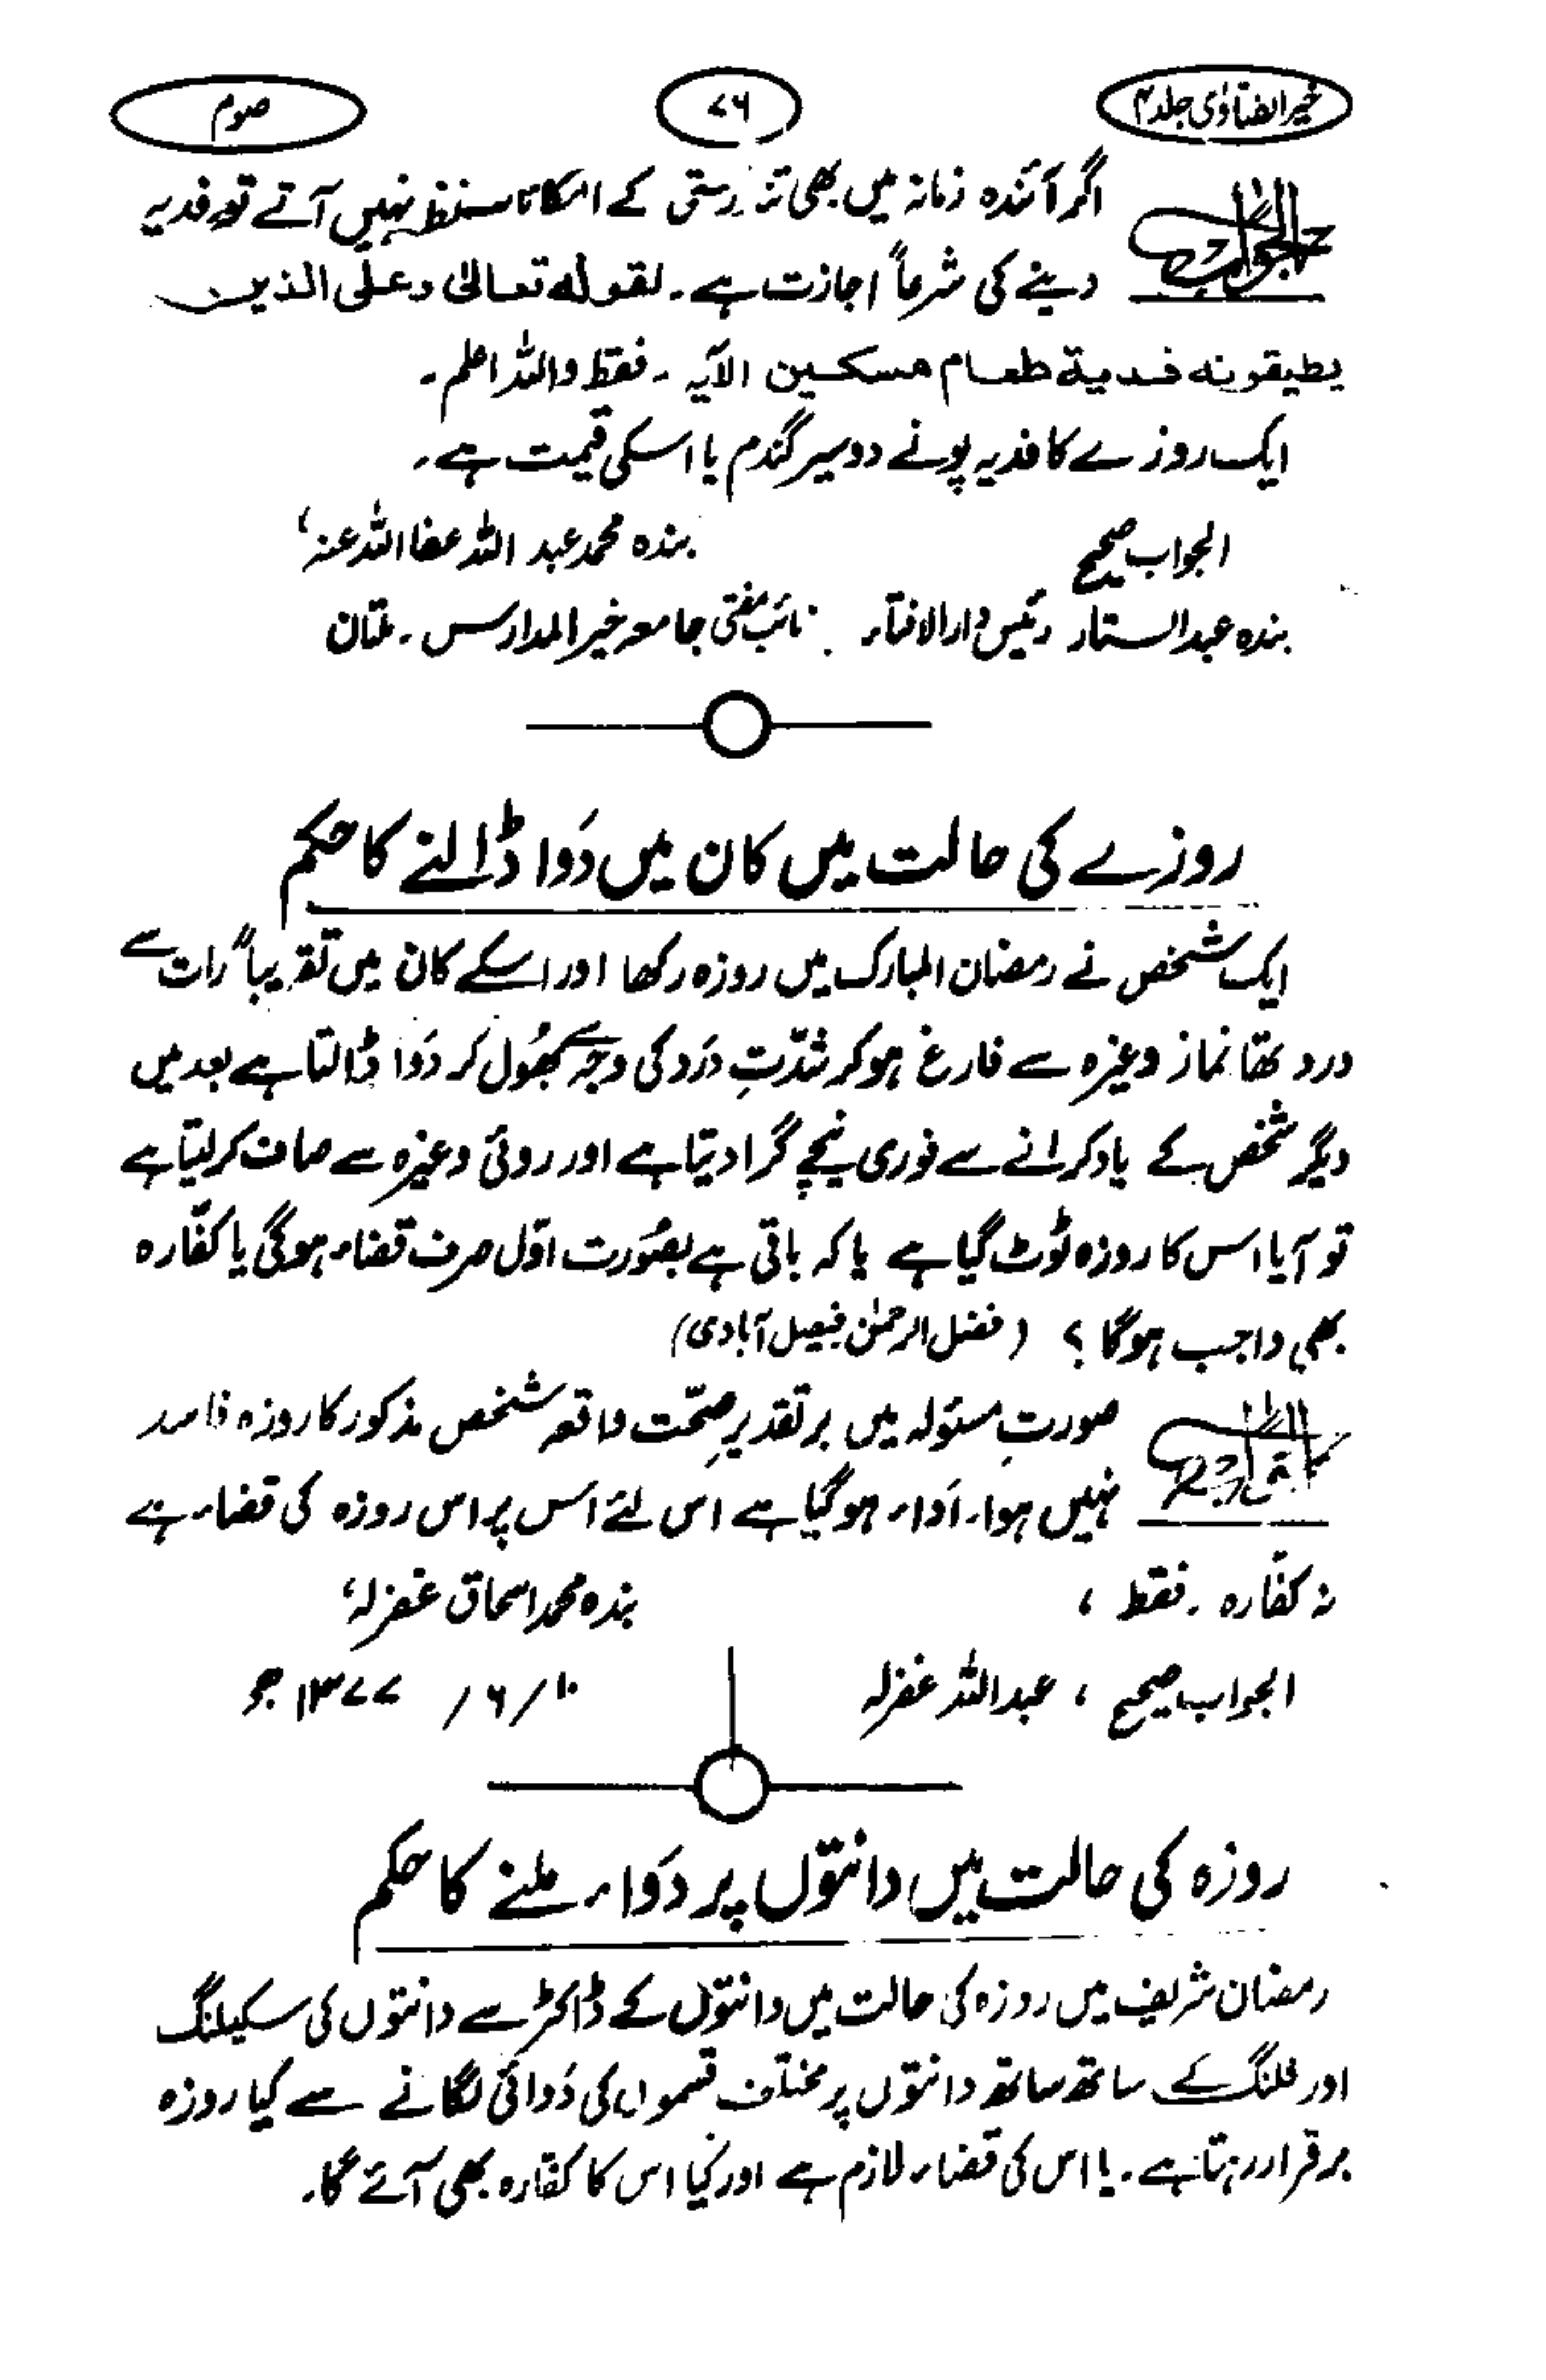 خیر الفتاوٰی جلد ۴
۷۶
صوم
الجواب
اگر آئندہ زمانہ میں بھی تندرستی کے امکانات نظر نہیں آتے تو فدیہ
دینے کی شرعاً اجازت ہے۔ لقوله تعالیٰ وعلی الذین
یطیقونه فدیة طعام مسکین الآیہ ۔ فقط واللہ اعلم ۔
ایک روزے کا فدیہ پونے دو سیر گندم یا اسکی قیمت ہے ۔
الجواب صحیح
بندہ محمد عبد اللہ عفا اللہ عنہ ،
بندہ عبدالستار رئیس دار الافتاء
نائب مفتی جامعہ خیر المدارس ۔ ملتان
روزے کی حالت میں کان میں دَوا ڈالنے کا حکم
ایک شخص نے رمضان المبارک میں روزہ رکھا اور اسکے کان میں تقریباً رات سے
درد تھا نماز وغیرہ سے فارغ ہو کر شدّتِ درد کی وجہ سے بھُول کر دَوا ڈالتا ہے بعد میں
دیگر شخص کے یاد کرانے سے فوری نیچے گرا دیتا ہے اور روئی وغیرہ سے صاف کر لیتا ہے
تو آیا اس کا روزہ ٹوٹ گیا ہے یا کہ باقی ہے بصُورت اوّل صرف قضاء ہوگی یا کفّارہ
بھی واجب ہوگا ؟ (فضل الرحمٰن فیصل آبادی)
الجواب
صورتِ مسئولہ میں بر تقدیرِ صحّت واقعہ شخص مذکور کا روزہ فاسد
نہیں ہوا۔ اَداء ہو گیا ہے اس لئے اس پر اس روزہ کی قضاء ہے
نہ کفّارہ ۔ فقط ،
بندہ محمد اسحاق غفرلہ ،
الجواب صحیح ، عبداللہ غفرلہ
۱۰/ ۶/ ۱۳۷۷ھ
روزہ کی حالت میں دانتوں پر دَواء ملنے کا حکم
رمضان شریف میں روزہ کی حالت میں دانتوں کے ڈاکٹر سے دانتوں کی سکیلنگ
اور فلنگ کے ساتھ ساتھ دانتوں پر مختلف قسموں کی دَوائی لگانے سے کیا روزہ
برقرار رہتا ہے ۔ یا اس کی قضاء لازم ہے اور کیا اس کا کفّارہ بھی آئے گا۔